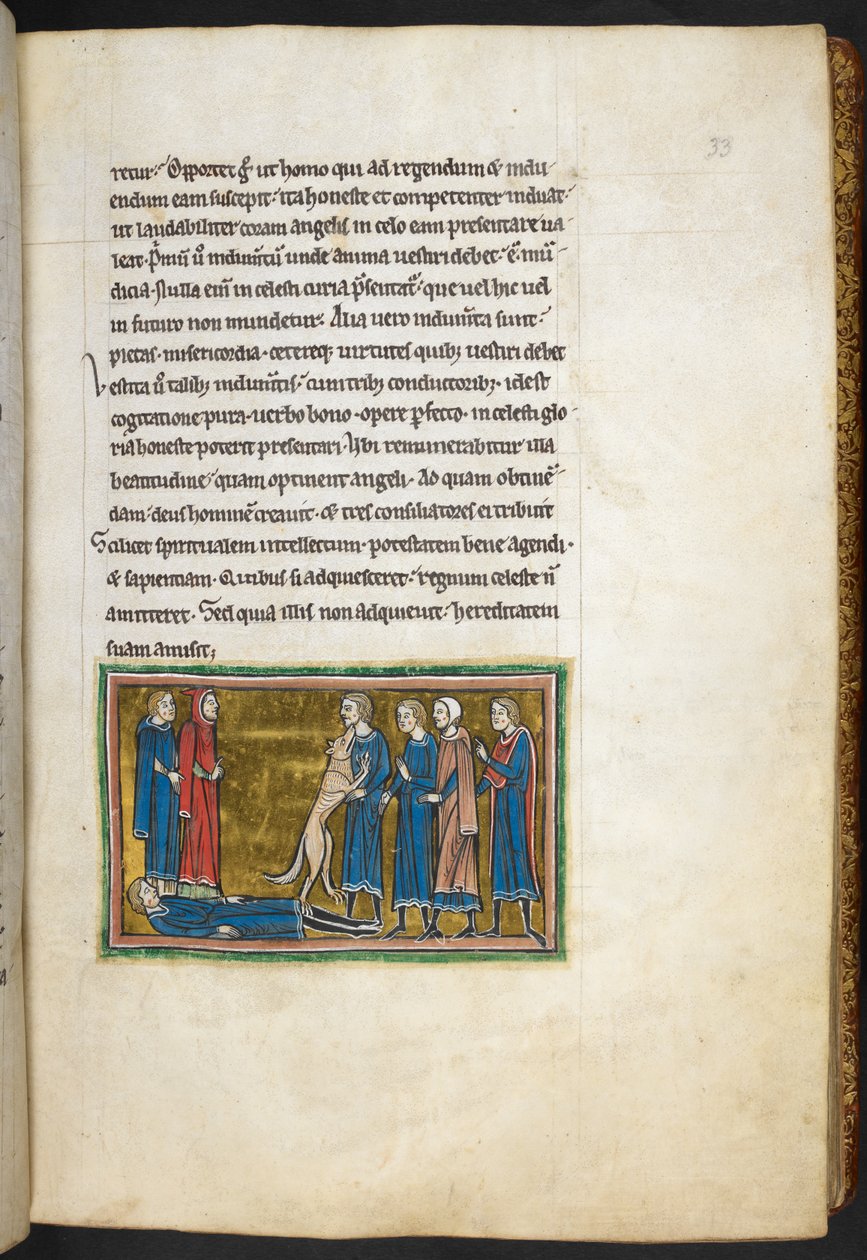 33
retur. Opportet g̃ ut homo qui ad regendum & indu-
endum eam suscepit. ita honeste et competenter induat.
ut laudabiliter coram angelis in celo eam presentare ua-
leat. P̃mũ ũ indumẽtũ unde anima uestiri debet. ẽ mũ-
dicia. Nulla eni͂ in celesti curia p̃sentat̃. que uel hic uel
in futuro non mundetur. Alia uero indumẽta sunt.
pietas. misericordia. ceterẽq; uirtutes quib; uestiri debet
Vestita ũ talib; indumẽtis. cum trib; conductorib;. id est
cogitatione pura. uerbo bono. opere ꝑfecto. in celesti glo-
ria honeste poterit presentari. Ubi remunerabitur illa
beatitudine quam optinent angeli. Ad quam obtinẽ-
dam deus hominẽ creauit. & tres consiliatores ei tribuit
Scilicet spiritualem intellectum. potestatem bene agendi.
& sapientiam. Quibus si adquiesceret. regnum celeste ñ
amitteret. Sed quia illis non adquieuit. hereditatem
suam amisit;